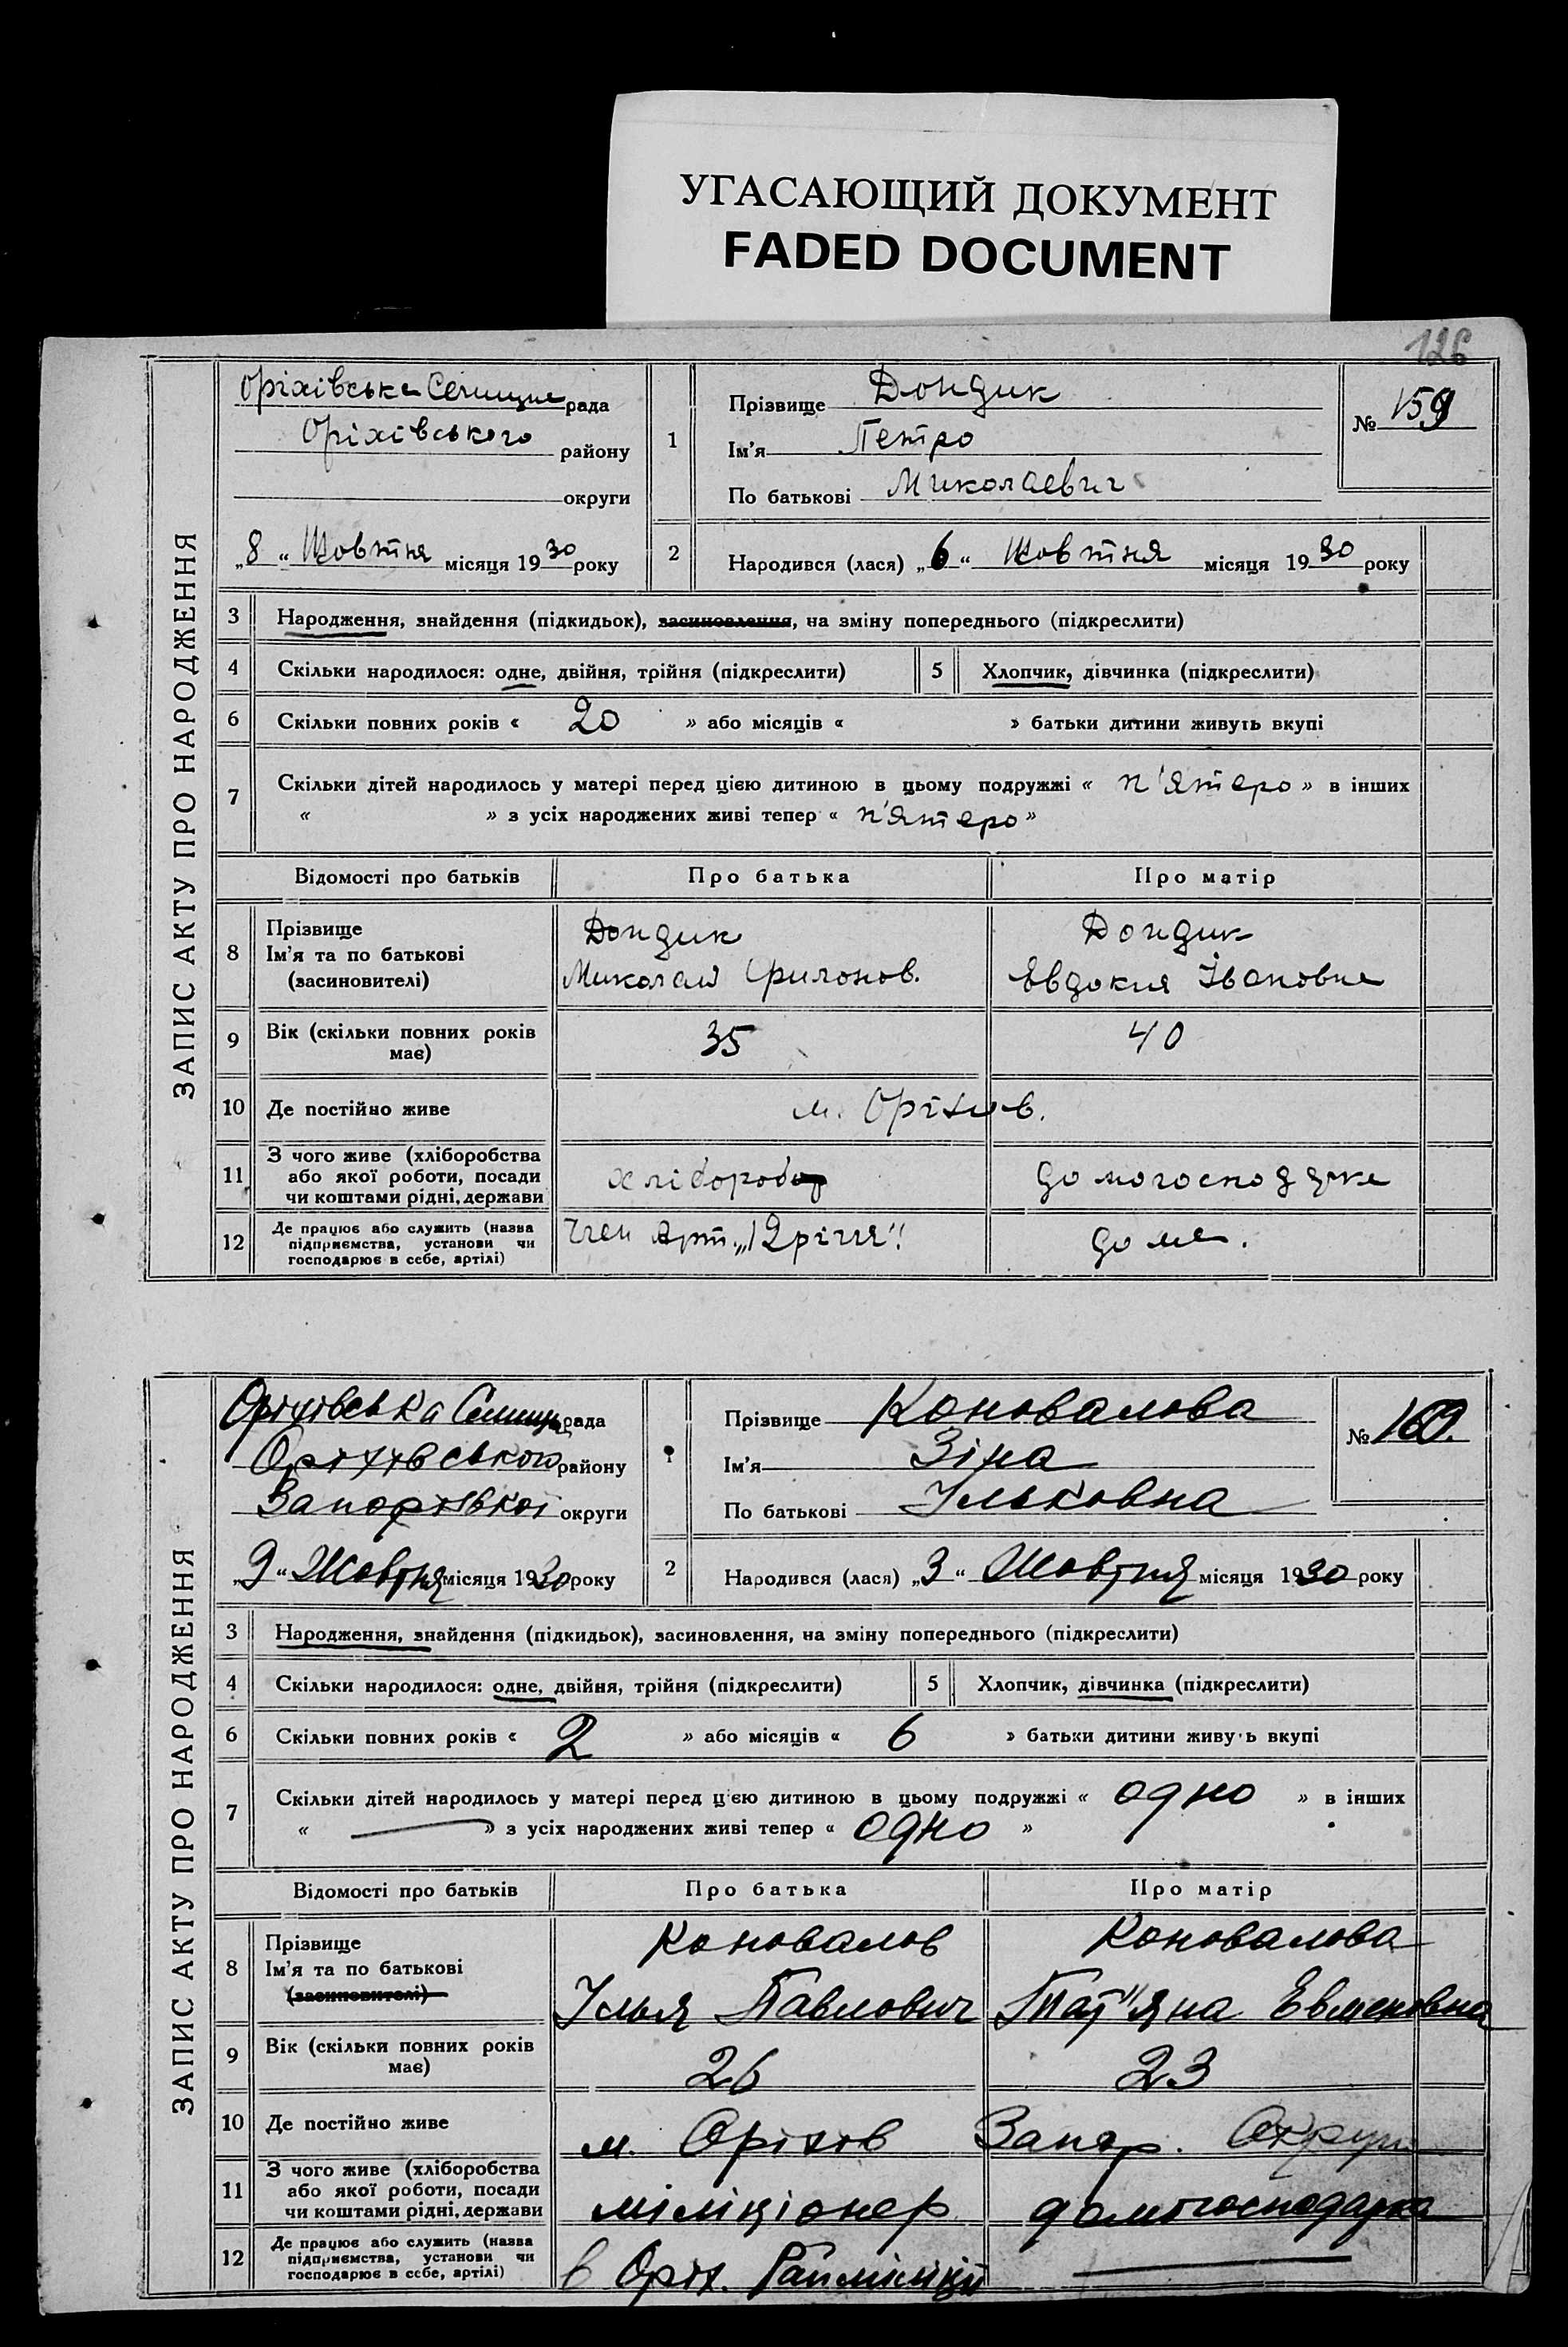 УГАСАЮЩИЙ ДОКУМЕНТ
FADED DOCUMENT
126
ЗАПИС АКТУ ПРО НАРОДЖЕННЯ
Оріхівська Селищна рада
Оріхівського району
округи
„8“ Жовтня місяця 1930 року
1
Прізвище Дондик
Ім'я Петро
По батькові Миколаевич
№ 159
2 Народився (лася) „6“ Жовтня місяця 1930 року
3 Народження, знайдення (підкидьок), засиновлення, на зміну попереднього (підкреслити)
4 Скільки народилося: одне, двійня, трійня (підкреслити)
5 Хлопчик, дівчинка (підкреслити)
6 Скільки повних років « 20 » або місяців « » батьки дитини живуть вкупі
7 Скільки дітей народилось у матері перед цією дитиною в цьому подружжі « п'ятеро » в інших
« » з усіх народжених живі тепер « п'ятеро »
Відомості про батьків Про батька Про матір
8 Прізвище
Ім'я та по батькові
(засиновителі)
Дондик
Миколай Филонов.
Дондик
Евдокия Івановна
9 Вік (скільки повних років
має)
35 40
10 Де постійно живе м. Оріхив.
11 З чого живе (хліборобства
або якої роботи, посади
чи коштами рідні, держави
хлібороб домогосподарка
12 Де працює або служить (назва
підприємства, установи чи
господарює в себе, артілі)
Член Арт. „12 річчя“ дома.
ЗАПИС АКТУ ПРО НАРОДЖЕННЯ
Оріхівська Селищн рада
Оріхівського району
округи
„9“ Жовтня місяця 1930 року
1
Прізвище Коновалова
Ім'я Зіна
По батькові Ільковна
№ 160.
2 Народився (лася) „3“ Жовтня місяця 1930 року
3 Народження, знайдення (підкидьок), засиновлення, на зміну попереднього (підкреслити)
4 Скільки народилося: одне, двійня, трійня (підкреслити)
5 Хлопчик, дівчинка (підкреслити)
6 Скільки повних років « 2 » або місяців « 6 » батьки дитини живуть вкупі
7 Скільки дітей народилось у матері перед цією дитиною в цьому подружжі « одно » в інших
« — » з усіх народжених живі тепер « одно »
Відомості про батьків Про батька Про матір
8 Прізвище
Ім'я та по батькові
(засиновителі)
Коновалов
Ілья Павлович
Коновалова
Тат"яна Евменовна
9 Вік (скільки повних років
має)
26 23
10 Де постійно живе м. Оріхів Запор. Округи
11 З чого живе (хліборобства
або якої роботи, посади
чи коштами рідні, держави
міліціонер домогосподарка
12 Де працює або служить (назва
підприємства, установи чи
господарює в себе, артілі)
в Оріх. Райміліціі